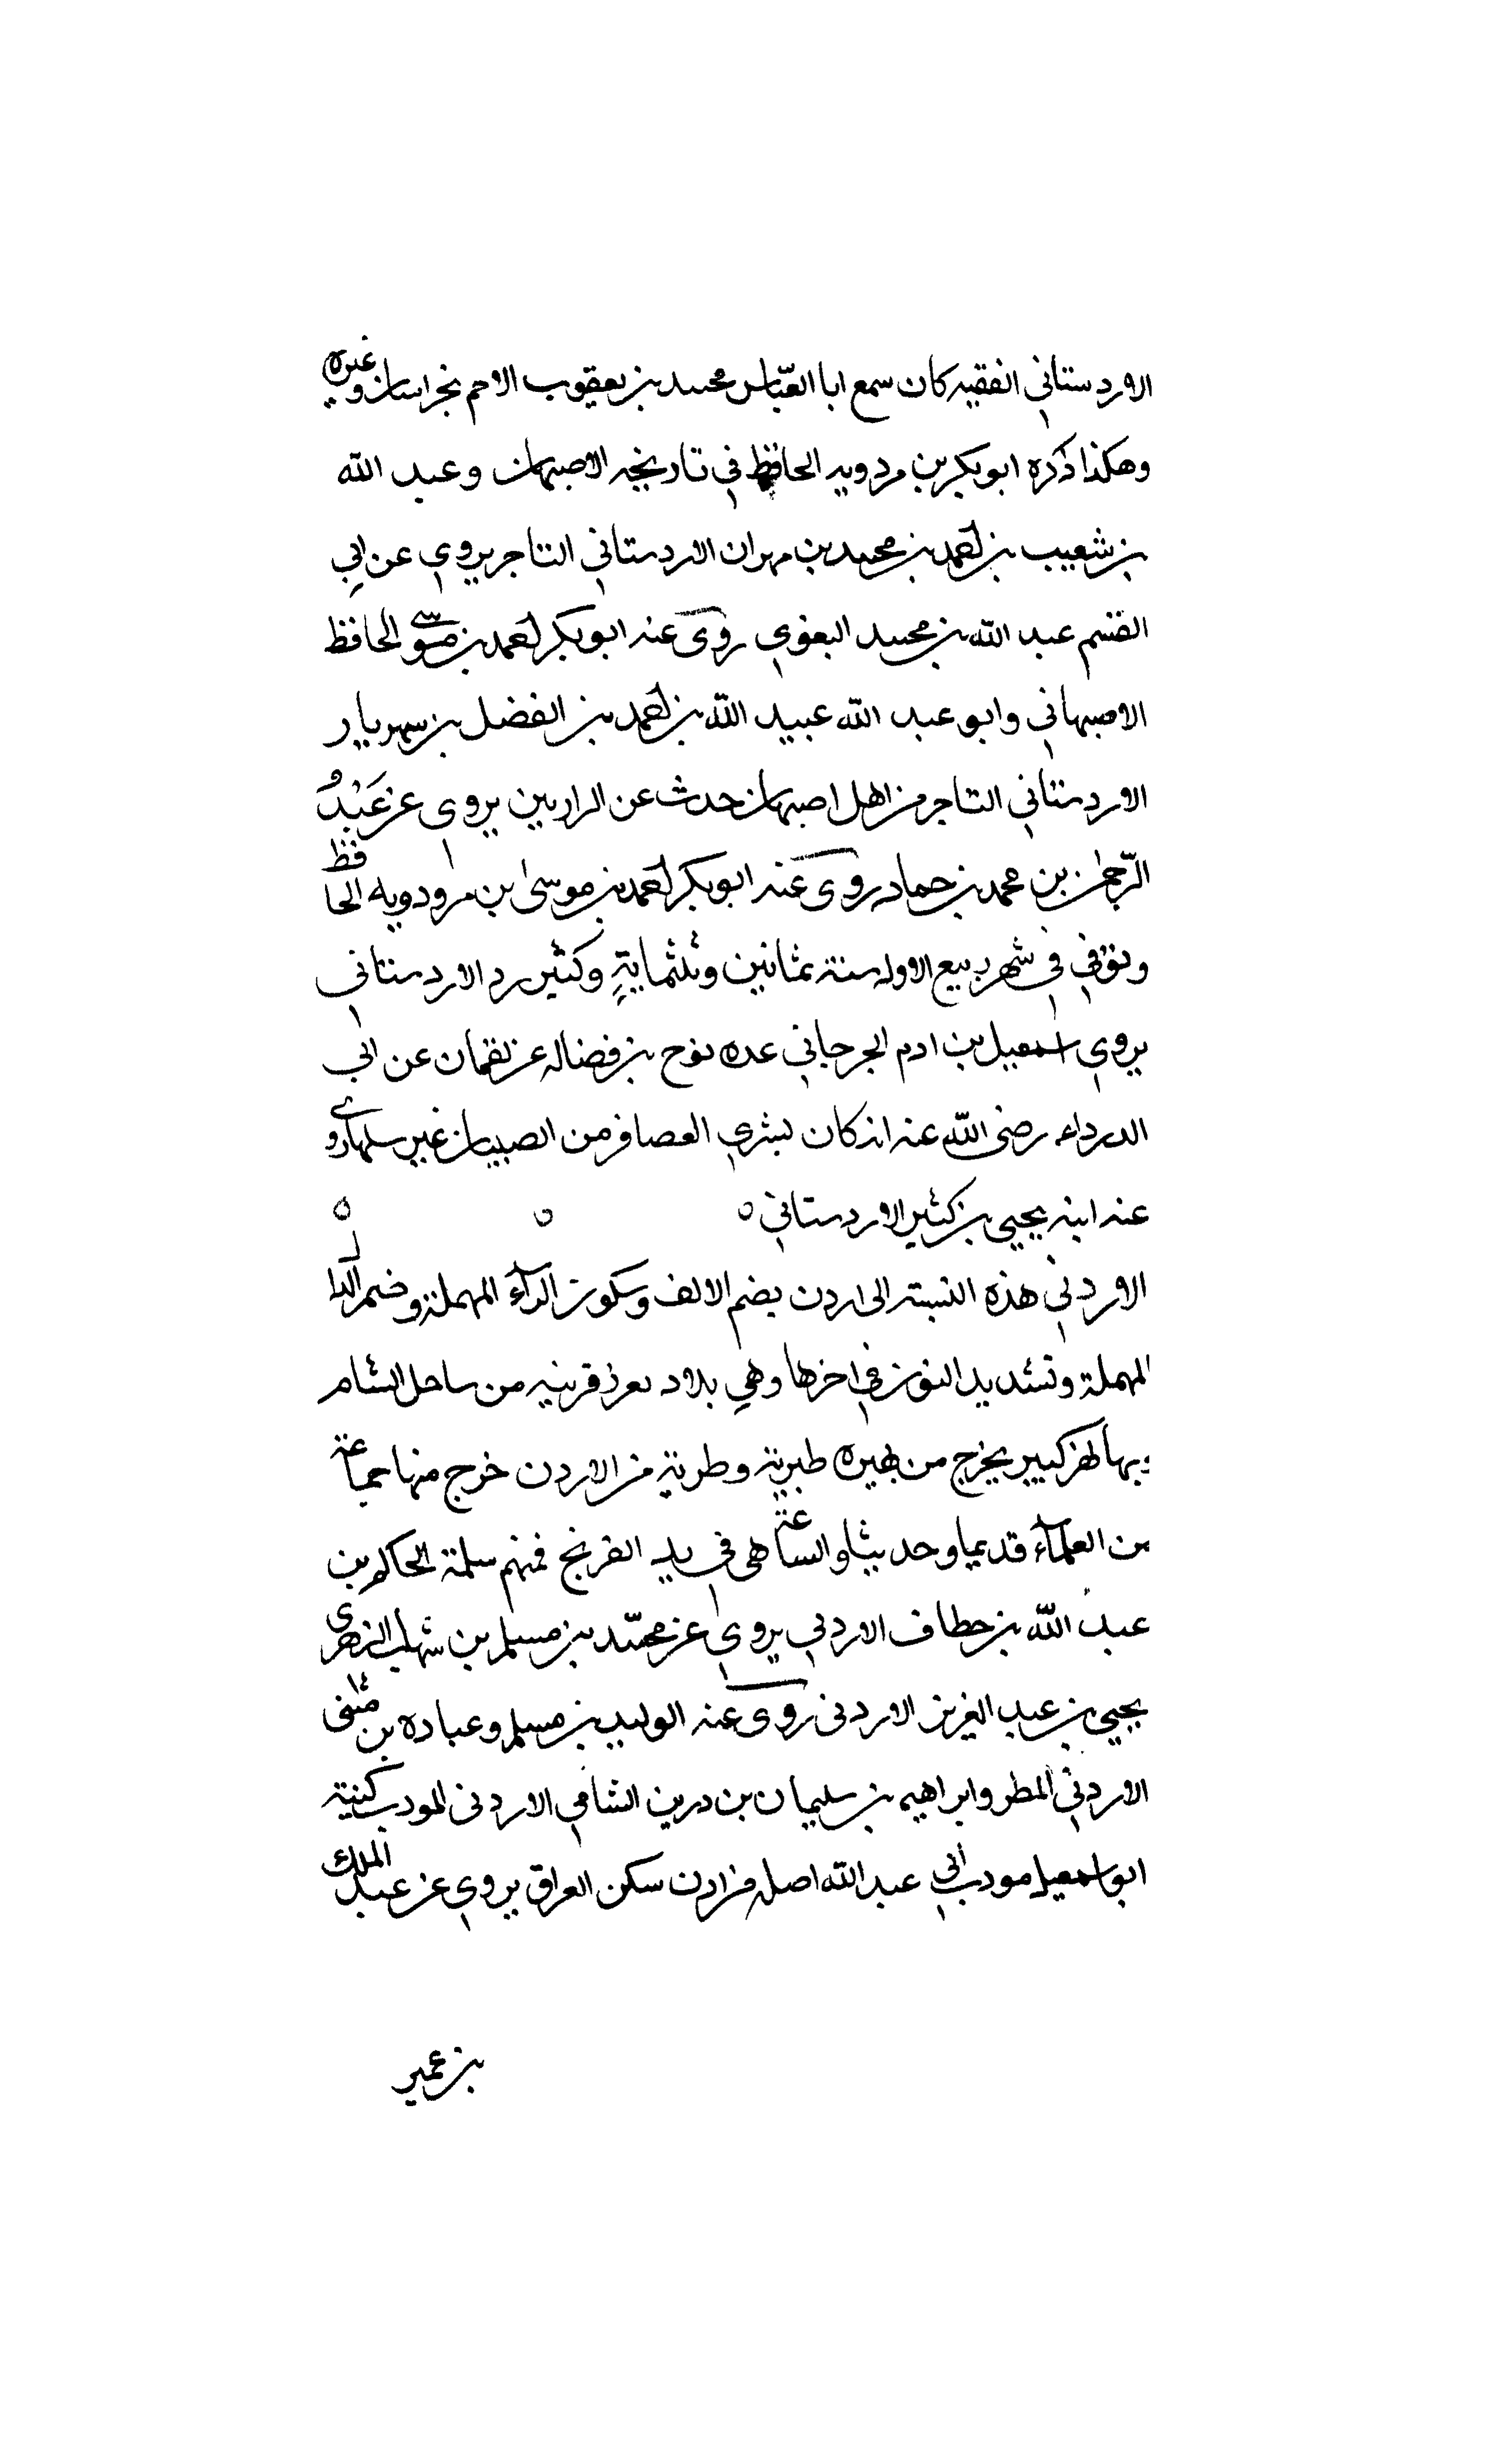 الاردستاني الفقيه كان سمع ابا العبّاس محمد بن يعقوب الاصم بخراسان وغيره
وهكذا ذكره ابو بكر بن مردويه الحافظ في تاريخه الاصبهان وعبد الله
بن شعيب بن احمد بن محمد بن مهران الاردستاني التاجر يروي عن ابي
القسم عبد الله بن محمد البغوي روى عنه ابو بكر احمد بن موسى الحافظ
الاصبهاني وابو عبد الله عبيد الله بن احمد بن الفضل بن سهريار
الاردستاني التاجر من اهل اصبهان حدث عن الرازيين يروي عن عَبْدُ
الرّحمن بن محمد بن حماد روى عنه ابو بكر احمد بن موسى ابن مرودويه الحافظ
وتوفي في شهر ربيع الاول سنة ثمانين وثلثمايةٍ وكثير رد الاردستاني
يروي اسمعيل بن ادم الجرجاني عده نوح بن فضاله عن لقمان عن ابي
الدرداء رضى الله عنه انه كان يشتري العصافر من الصبيان غير سلها روى
عنه ابنه يحيي بن كثير الاردستاني ٥ ٥ ٥
الاردني هذه النسبة الى اردن بضم الالف وسكون الرآء المهملة وضم الدال
المهملة وتشديد النون في اخرها وهي بلاد من ساحل الشام
بها نهر كبير يخرج من بحيره طبرية وطبرية من الاردن خرج منها جماعة
من العلمآء قديما وحديثا والساعة هى في يد الفرنج فمنهم سلمة الحاكم بن
عبد الله بن خطاف الاردني يروي عن محمّد بن مسلم بن شهاب الزهرى
يحيي بن عبد العزيز الاردنى روى عنه الوليد بن مسلم وعباده بن مثنى
الاردني المطر وابراهيم بن سليمان بن درين الشامي الاردنى المودب كنية
ابو اسمعيل مودب ابي عبد الله اصله من اردن سكن العراق يروي عن عبد الملك
بن عمير